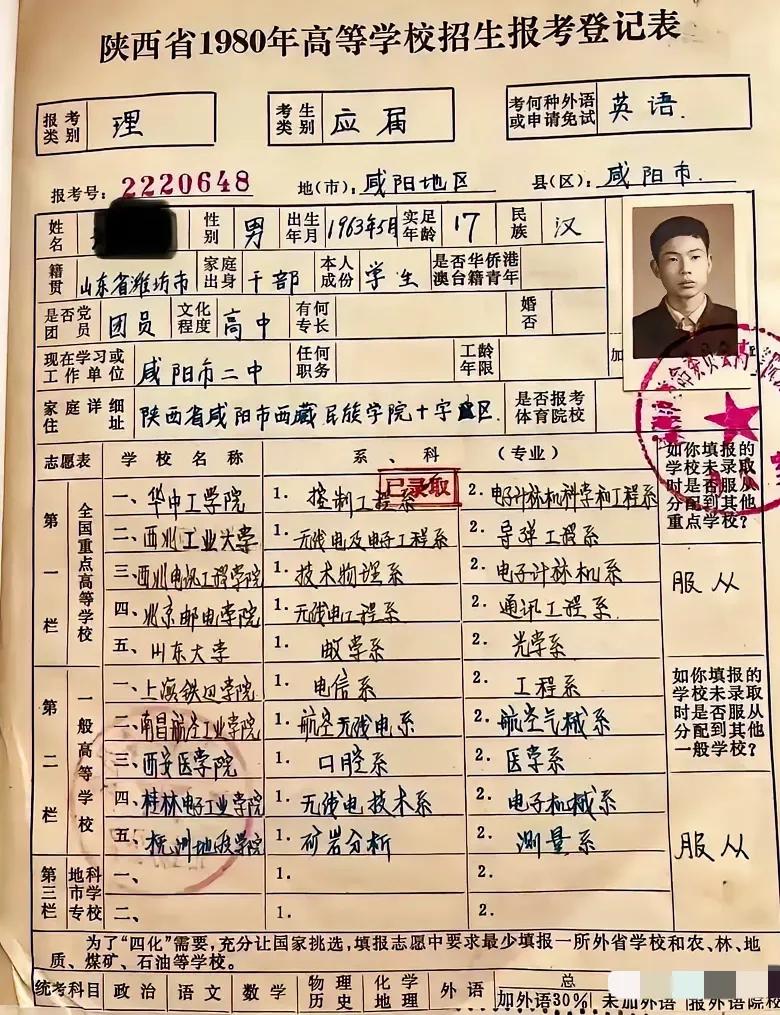 陕西省1980年高等学校招生报考登记表
报考类别 理 考生类别 应届 考何种外语或申请免试 英语.
报考号: 2220648 地(市): 咸阳地区 县(区): 咸阳市.
姓名 性别 男 出生年月 1963年5月 实足年龄 17 民族 汉
籍贯 山东省潍坊市 家庭出身 干部 本人成份 学生 是否华侨港澳台籍青年
是否党团员 团员 文化程度 高中 有何专长 婚否
现在学习或工作单位 咸阳市二中 任何职务 工龄年限 加
家庭详细住址 陕西省咸阳市西藏民族学院十字区. 是否报考体育院校
志愿表 学校名称 系、科(专业) 如你填报的学校未录取时是否服从分配到其他重点学校?
已录取
第一栏 全国重点高等学校
一、华中工学院 1. 控制工程系 2. 电子计祘机科学和工程系
二、西北工业大学 1. 无线电及电子工程系 2. 导弹工程系
三、西北电讯工程学院 1. 技术物理系 2. 电子计祘机系
服从
四、北京邮电学院 1. 无线电工程系 2. 通讯工程系.
五、山东大学 1. 数学系 2. 光学系
第二栏 一般高等学校 如你填报的学校未录取时是否服从分配到其他一般学校?
一、上海铁道学院 1. 电信系 2. 工程系
二、南昌航空工业学院 1. 航空无线电系 2. 航空气械系
三、西安医学院 1. 口腔系 2. 医学系
四、桂林电子工业学院 1. 无线电技术系 2. 电子机械系
五、杭州地质学院 1. 矿岩分析 2. 测量系
服从
第三栏 地市科学专校
一、 1. 2.
二、 1. 2.
为了“四化”需要,充分让国家挑选,填报志愿中要求最少填报一所外省学校和农、林、地
质、煤矿、石油等学校。
统考科目 政治 语文 数学 物理历史 化学地理 外语 总
加外语30% 未加外语 报外语院校